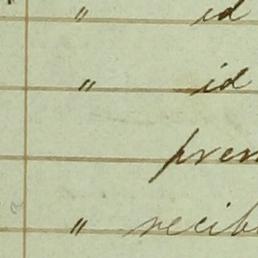 " id
" id
pren
" recib